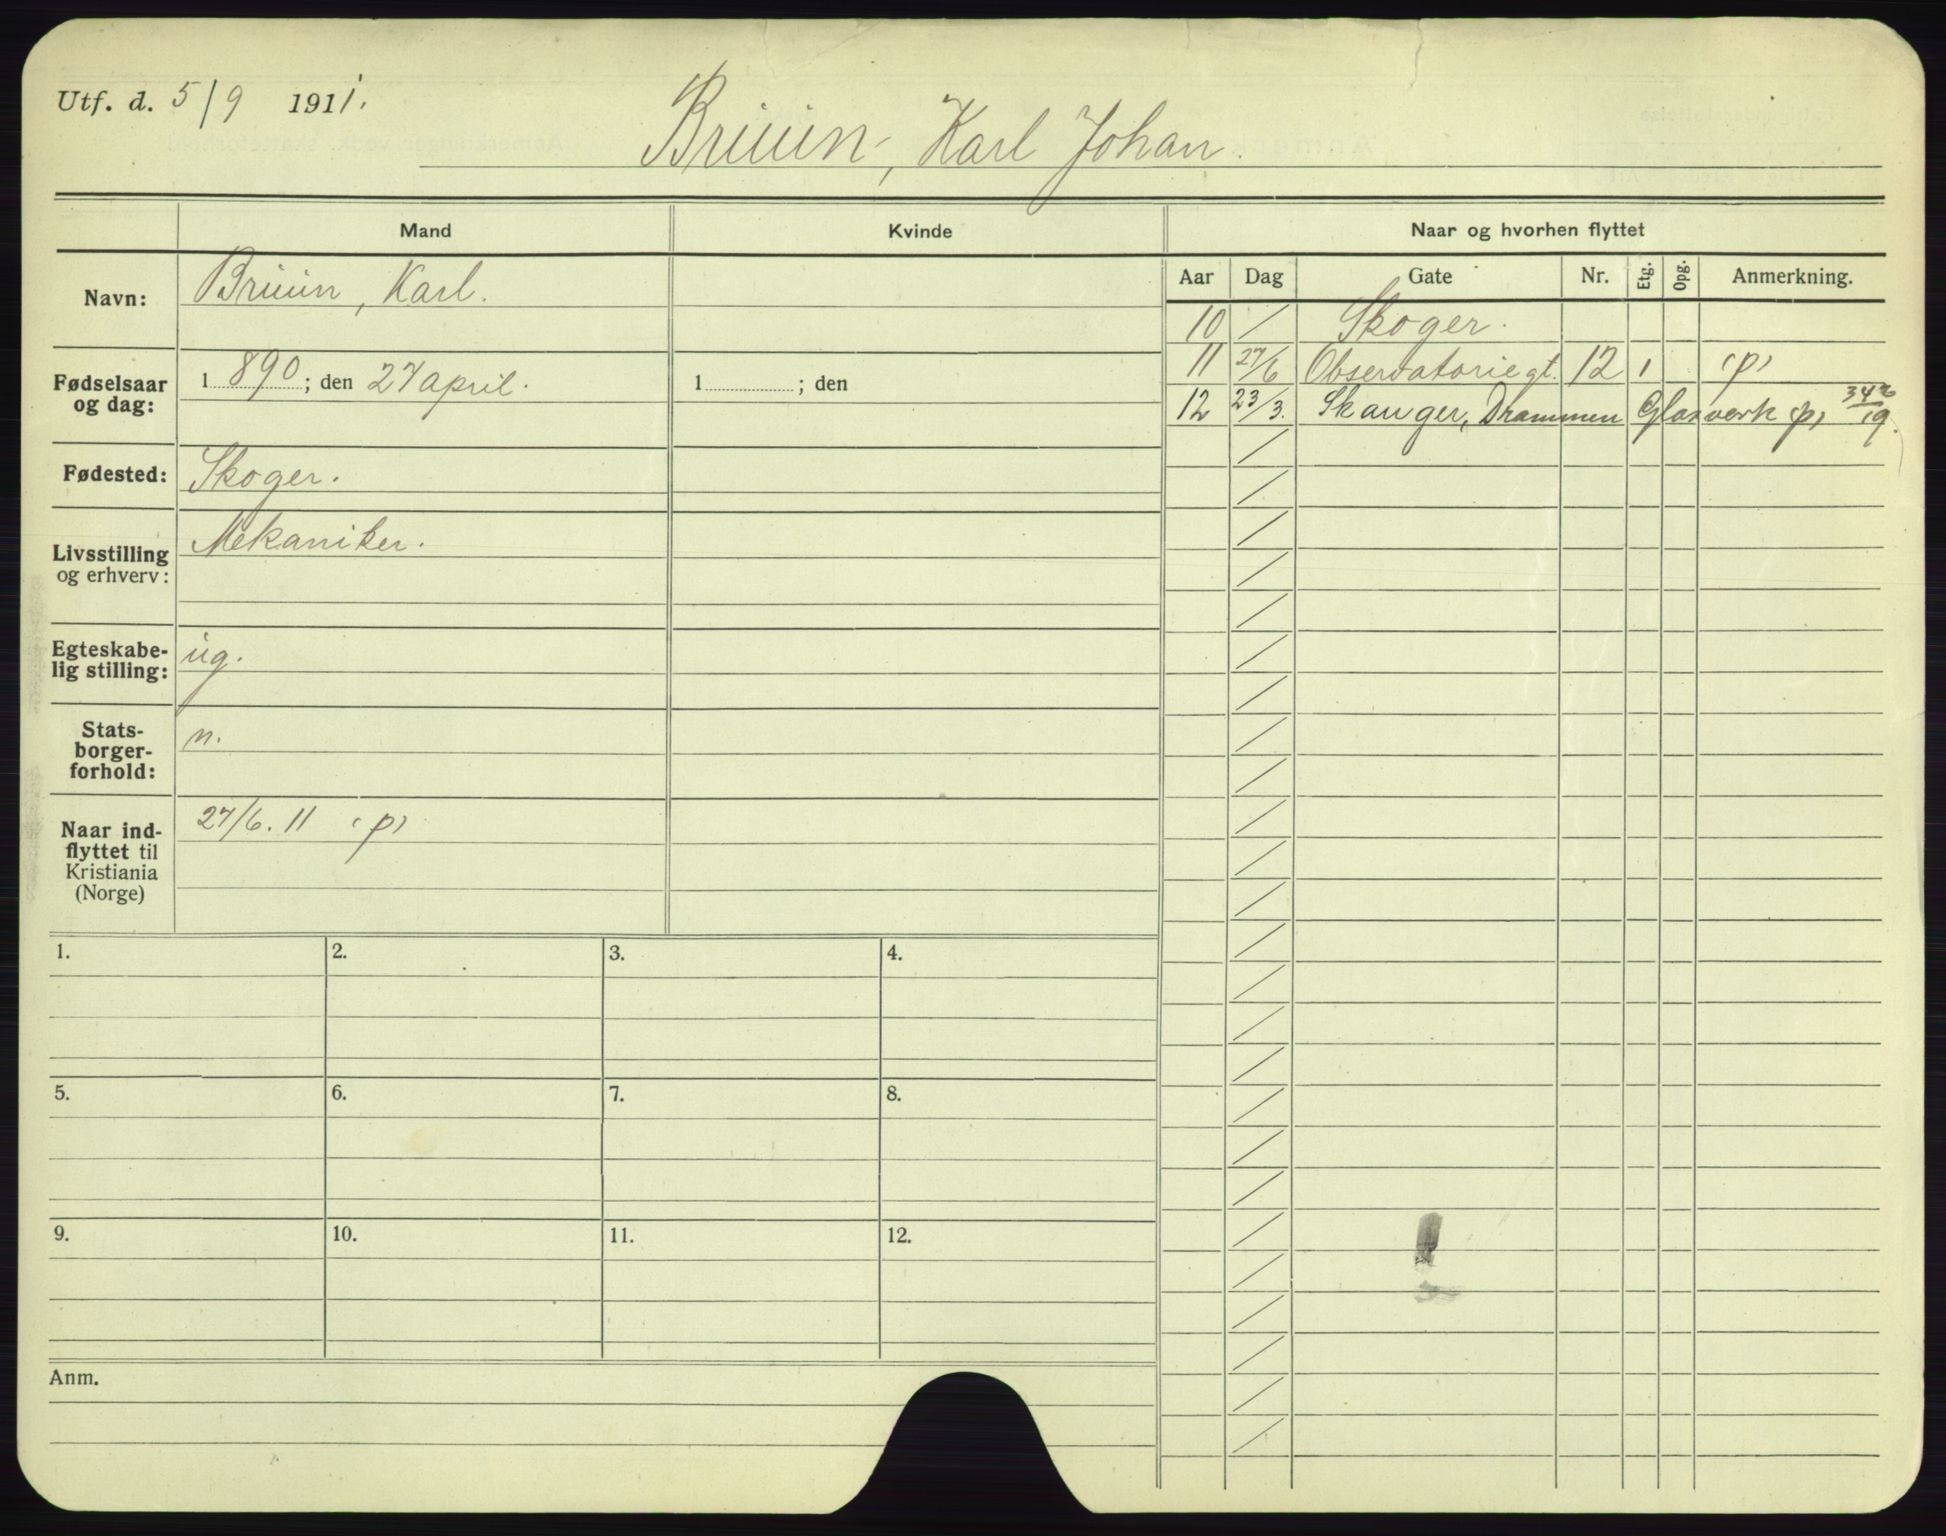 Utf. d. 5/9 1911.
Bruun, Karl Johan.
Mand
Kvinde
Naar og hvorhen flyttet
Aar Dag Gate Nr. Etg. Opg. Anmerkning.
Navn: Bruun, Karl.
Fødselsaar og dag: 1890; den 27 april. 1 ; den
Fødested: Skoger.
Livsstilling og erhverv: Mekaniker.
Egteskabe-
lig stilling: ug.
Stats-
borger-
forhold: n.
Naar ind-
flyttet til
Kristiania
(Norge) 27/6. 11 (p)
10 / Skoger.
11 27/6 Observatoriegt. 12 1 (p)
12 23/3. Skauger, Drammen Glasverk (p)
1. 2. 3. 4.
5. 6. 7. 8.
9. 10. 11. 12.
Anm.